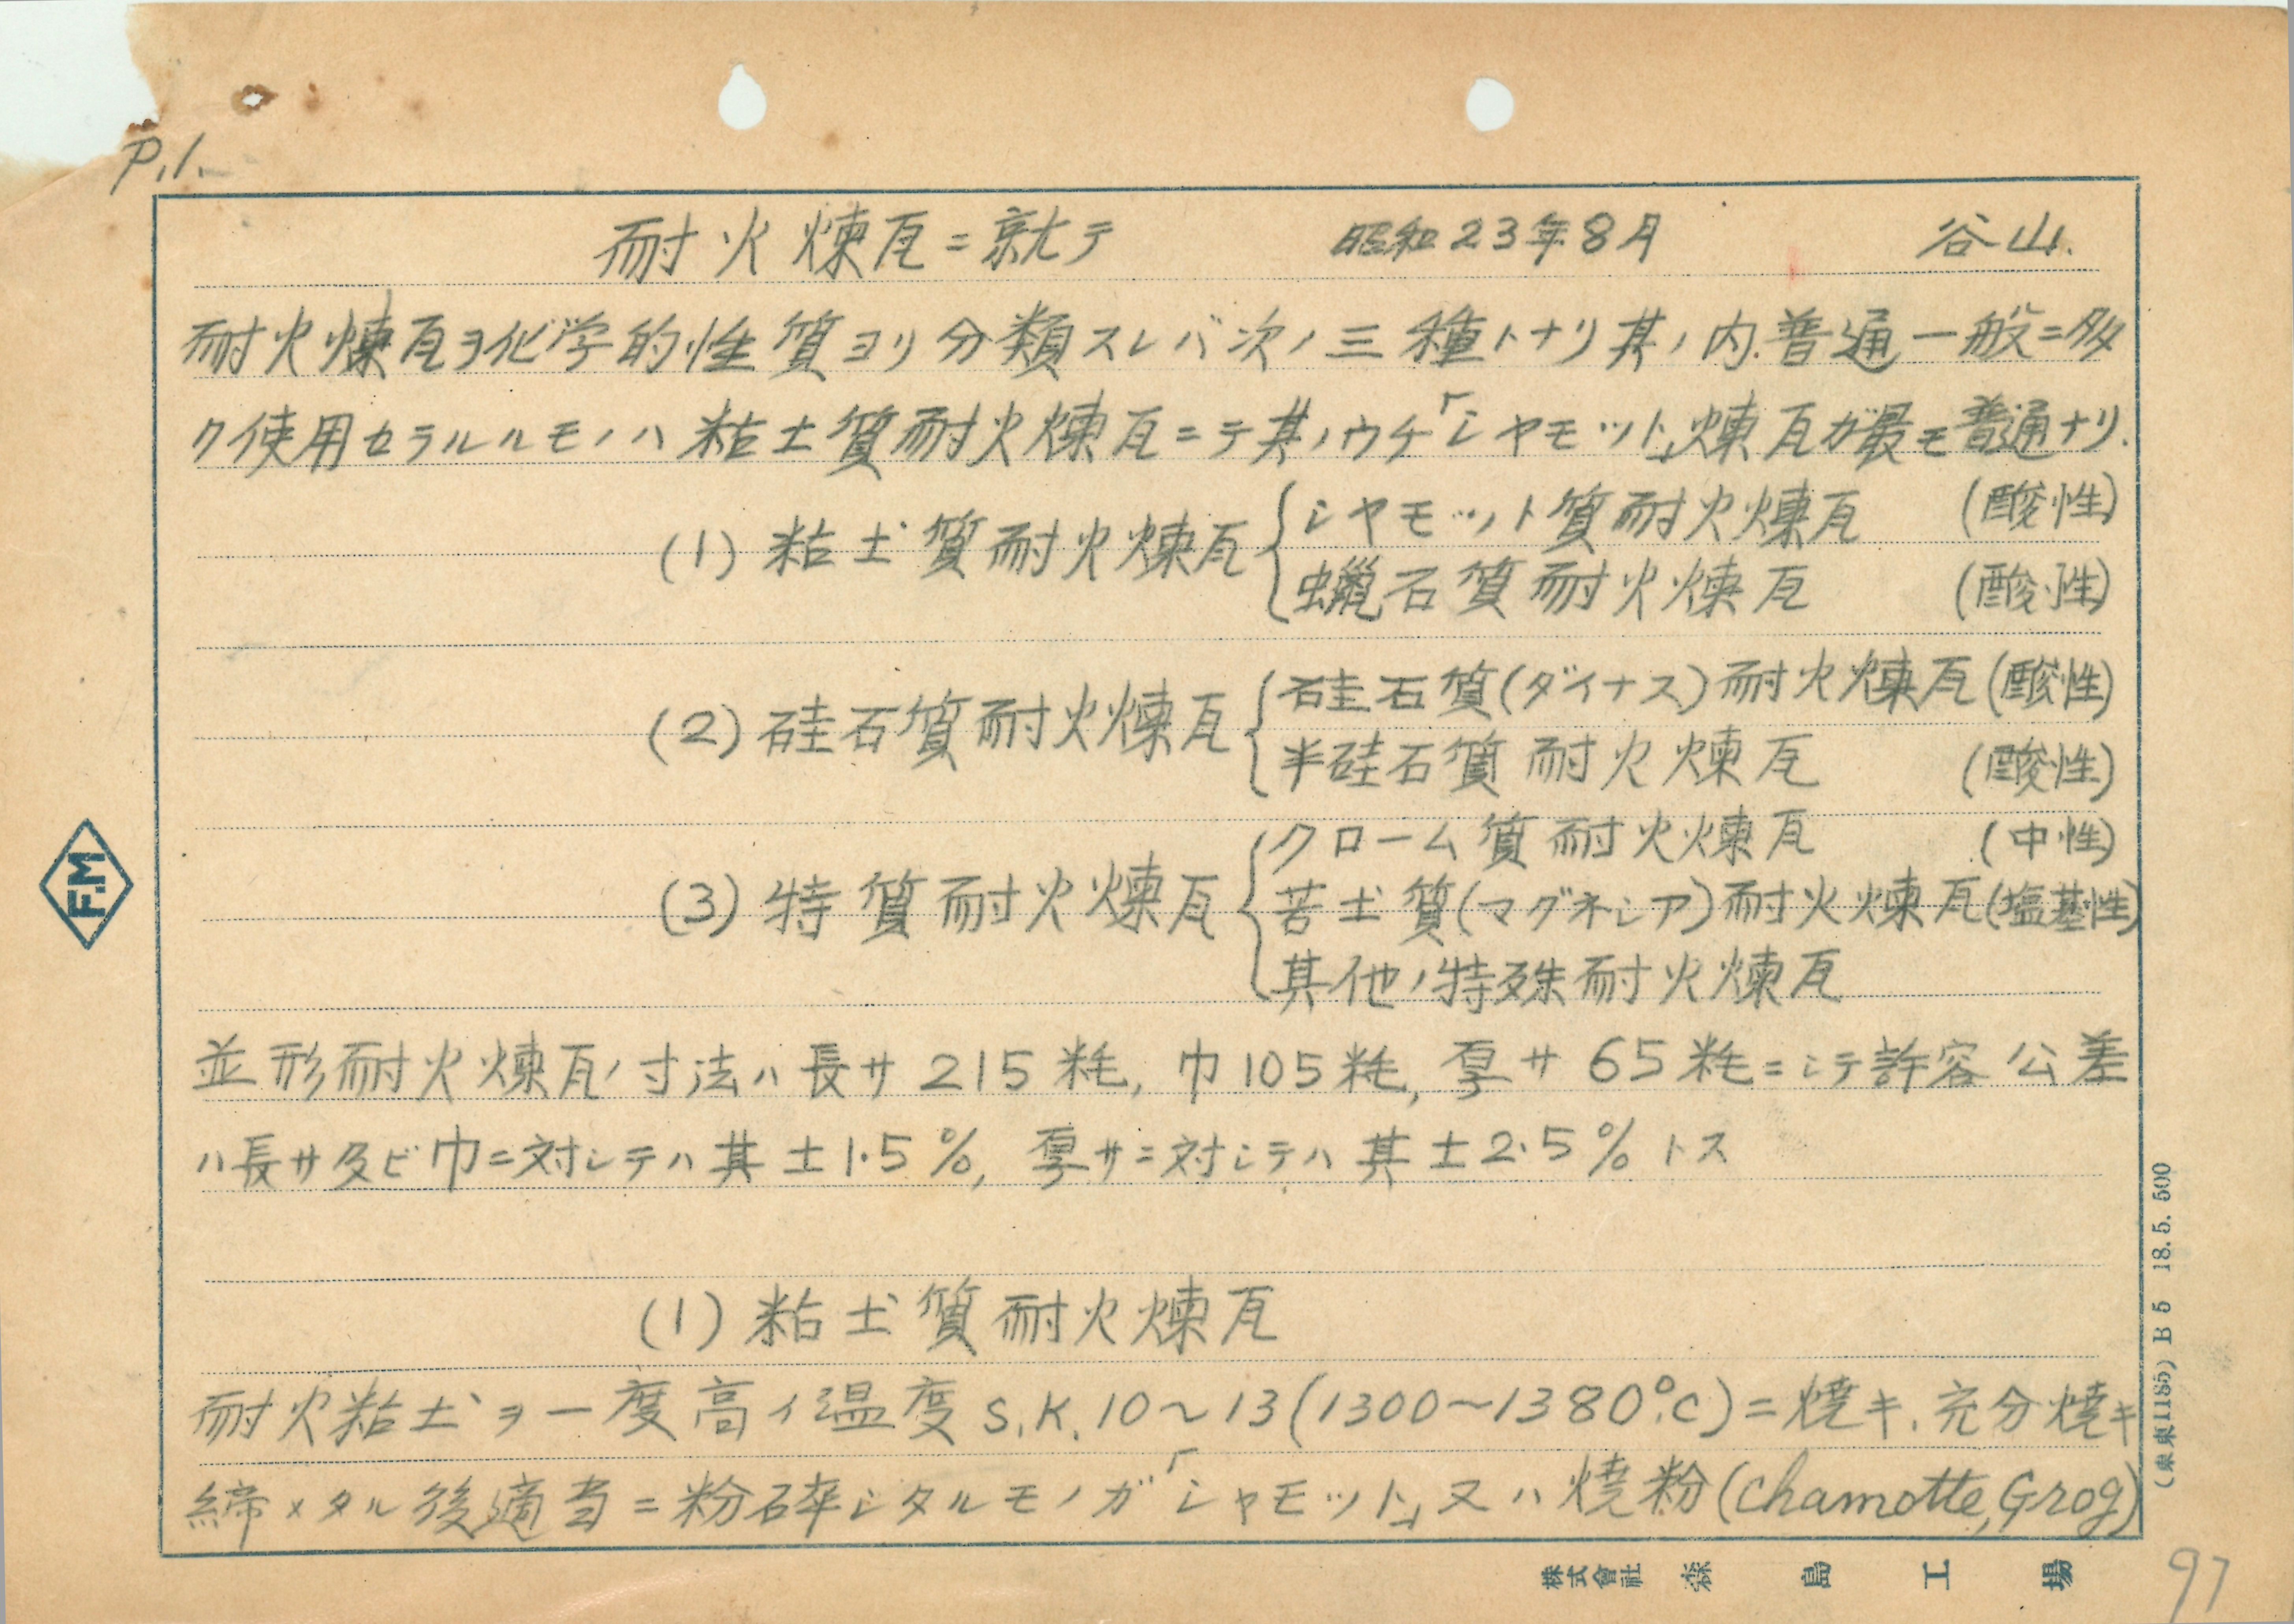 P.1.
耐火煉瓦ニ就テ 昭和23年8月 谷山.
耐火煉瓦ヲ化学的性質ヨリ分類スレバ次ノ三種トナリ其ノ内.普通一般ニ多
ク使用セラルルモノハ粘土質耐火煉瓦ニテ其ノウチ「シヤモット」煉瓦ガ最モ普通ナリ.
(1) 粘土質耐火煉瓦 { シヤモット質耐火煉瓦 (酸性)
蠟石質耐火煉瓦 (酸性)
(2) 硅石質耐火煉瓦 { 硅石質(ダイナス)耐火煉瓦 (酸性)
半硅石質耐火煉瓦 (酸性)
(3) 特質耐火煉瓦 { クローム質耐火煉瓦 (中性)
苦土質(マグネシア)耐火煉瓦 (塩基性)
其他ノ特殊耐火煉瓦
並形耐火煉瓦ノ寸法ハ長サ 215 粍, 巾 105 粍, 厚サ 65 粍ニシテ許容公差
ハ長サ及ビ巾ニ対シテハ其 ±1.5%, 厚サニ対シテハ其 ±2.5% トス
(1) 粘土質耐火煉瓦
耐火粘土ヲ一度高イ温度 S.K. 10～13 (1300～1380°C)ニ焼キ. 充分焼キ
締メタル後適当ニ粉砕シタルモノガ「シヤモット」又ハ焼粉(chamotte, Grog)
F.M
(東東1185) B5 18.5.500
株式會社 森島工場
97